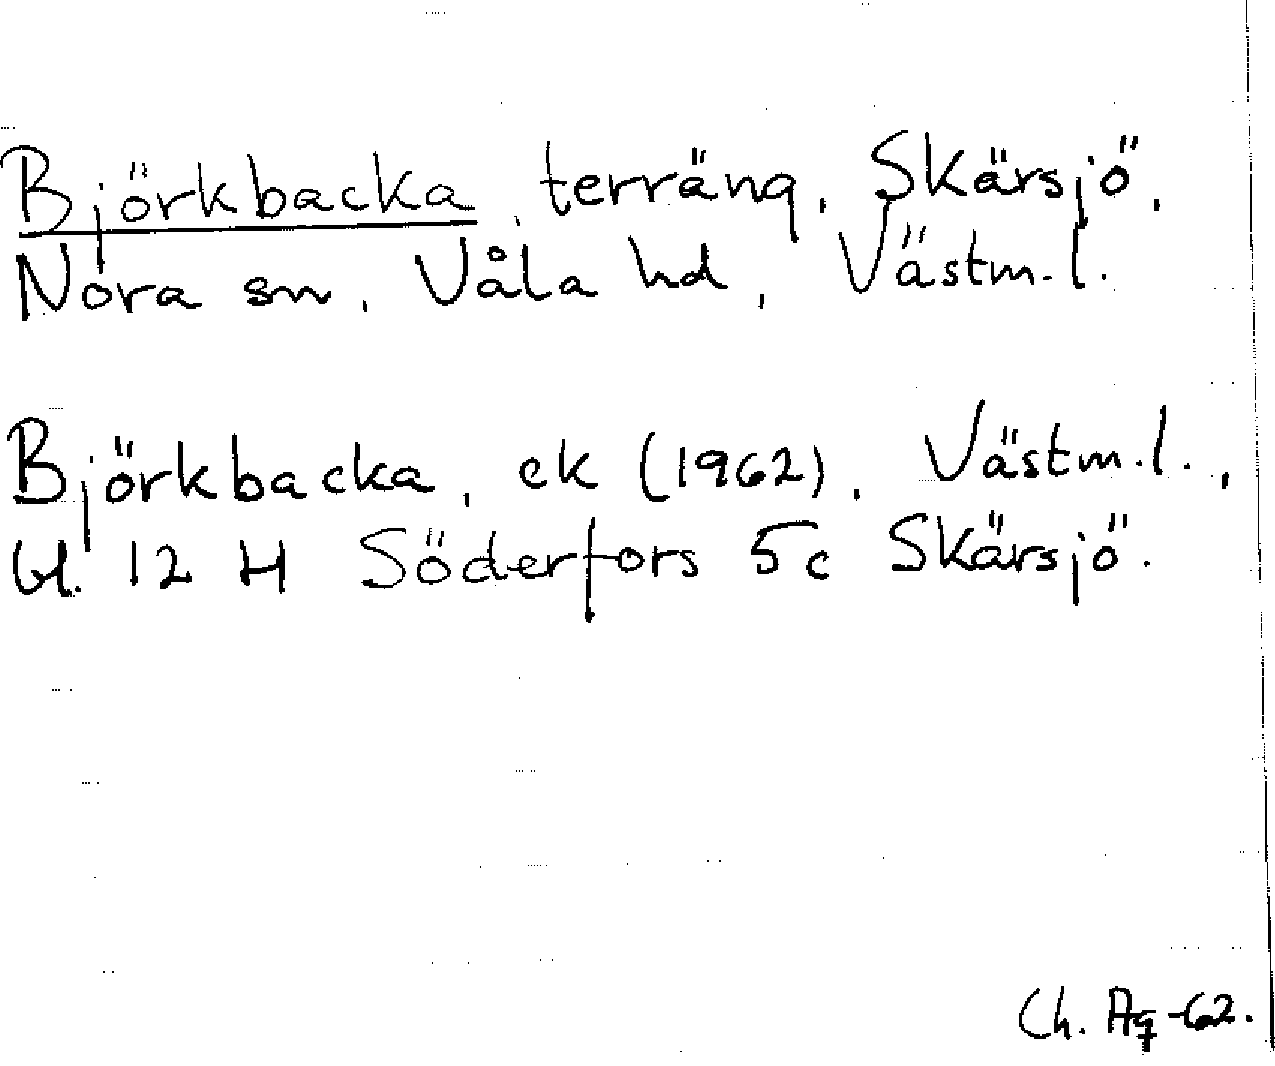 Björkbacka, terräng, Skärsjö,
Nora sn, Våla hd, Västm.l.
Björkbacka, ek (1962), Västm.l.,
bl. 12 H Söderfors 5c Skärsjö.
Ch. Ag -62.